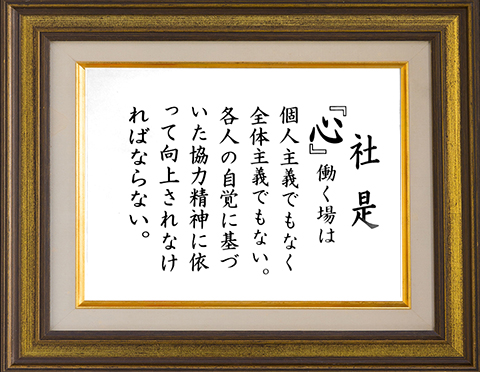 社是
『心』働く場は
個人主義でもなく
全体主義でもない。
各人の自覚に基づ
いた協力精神に依
って向上されなけ
ればならない。